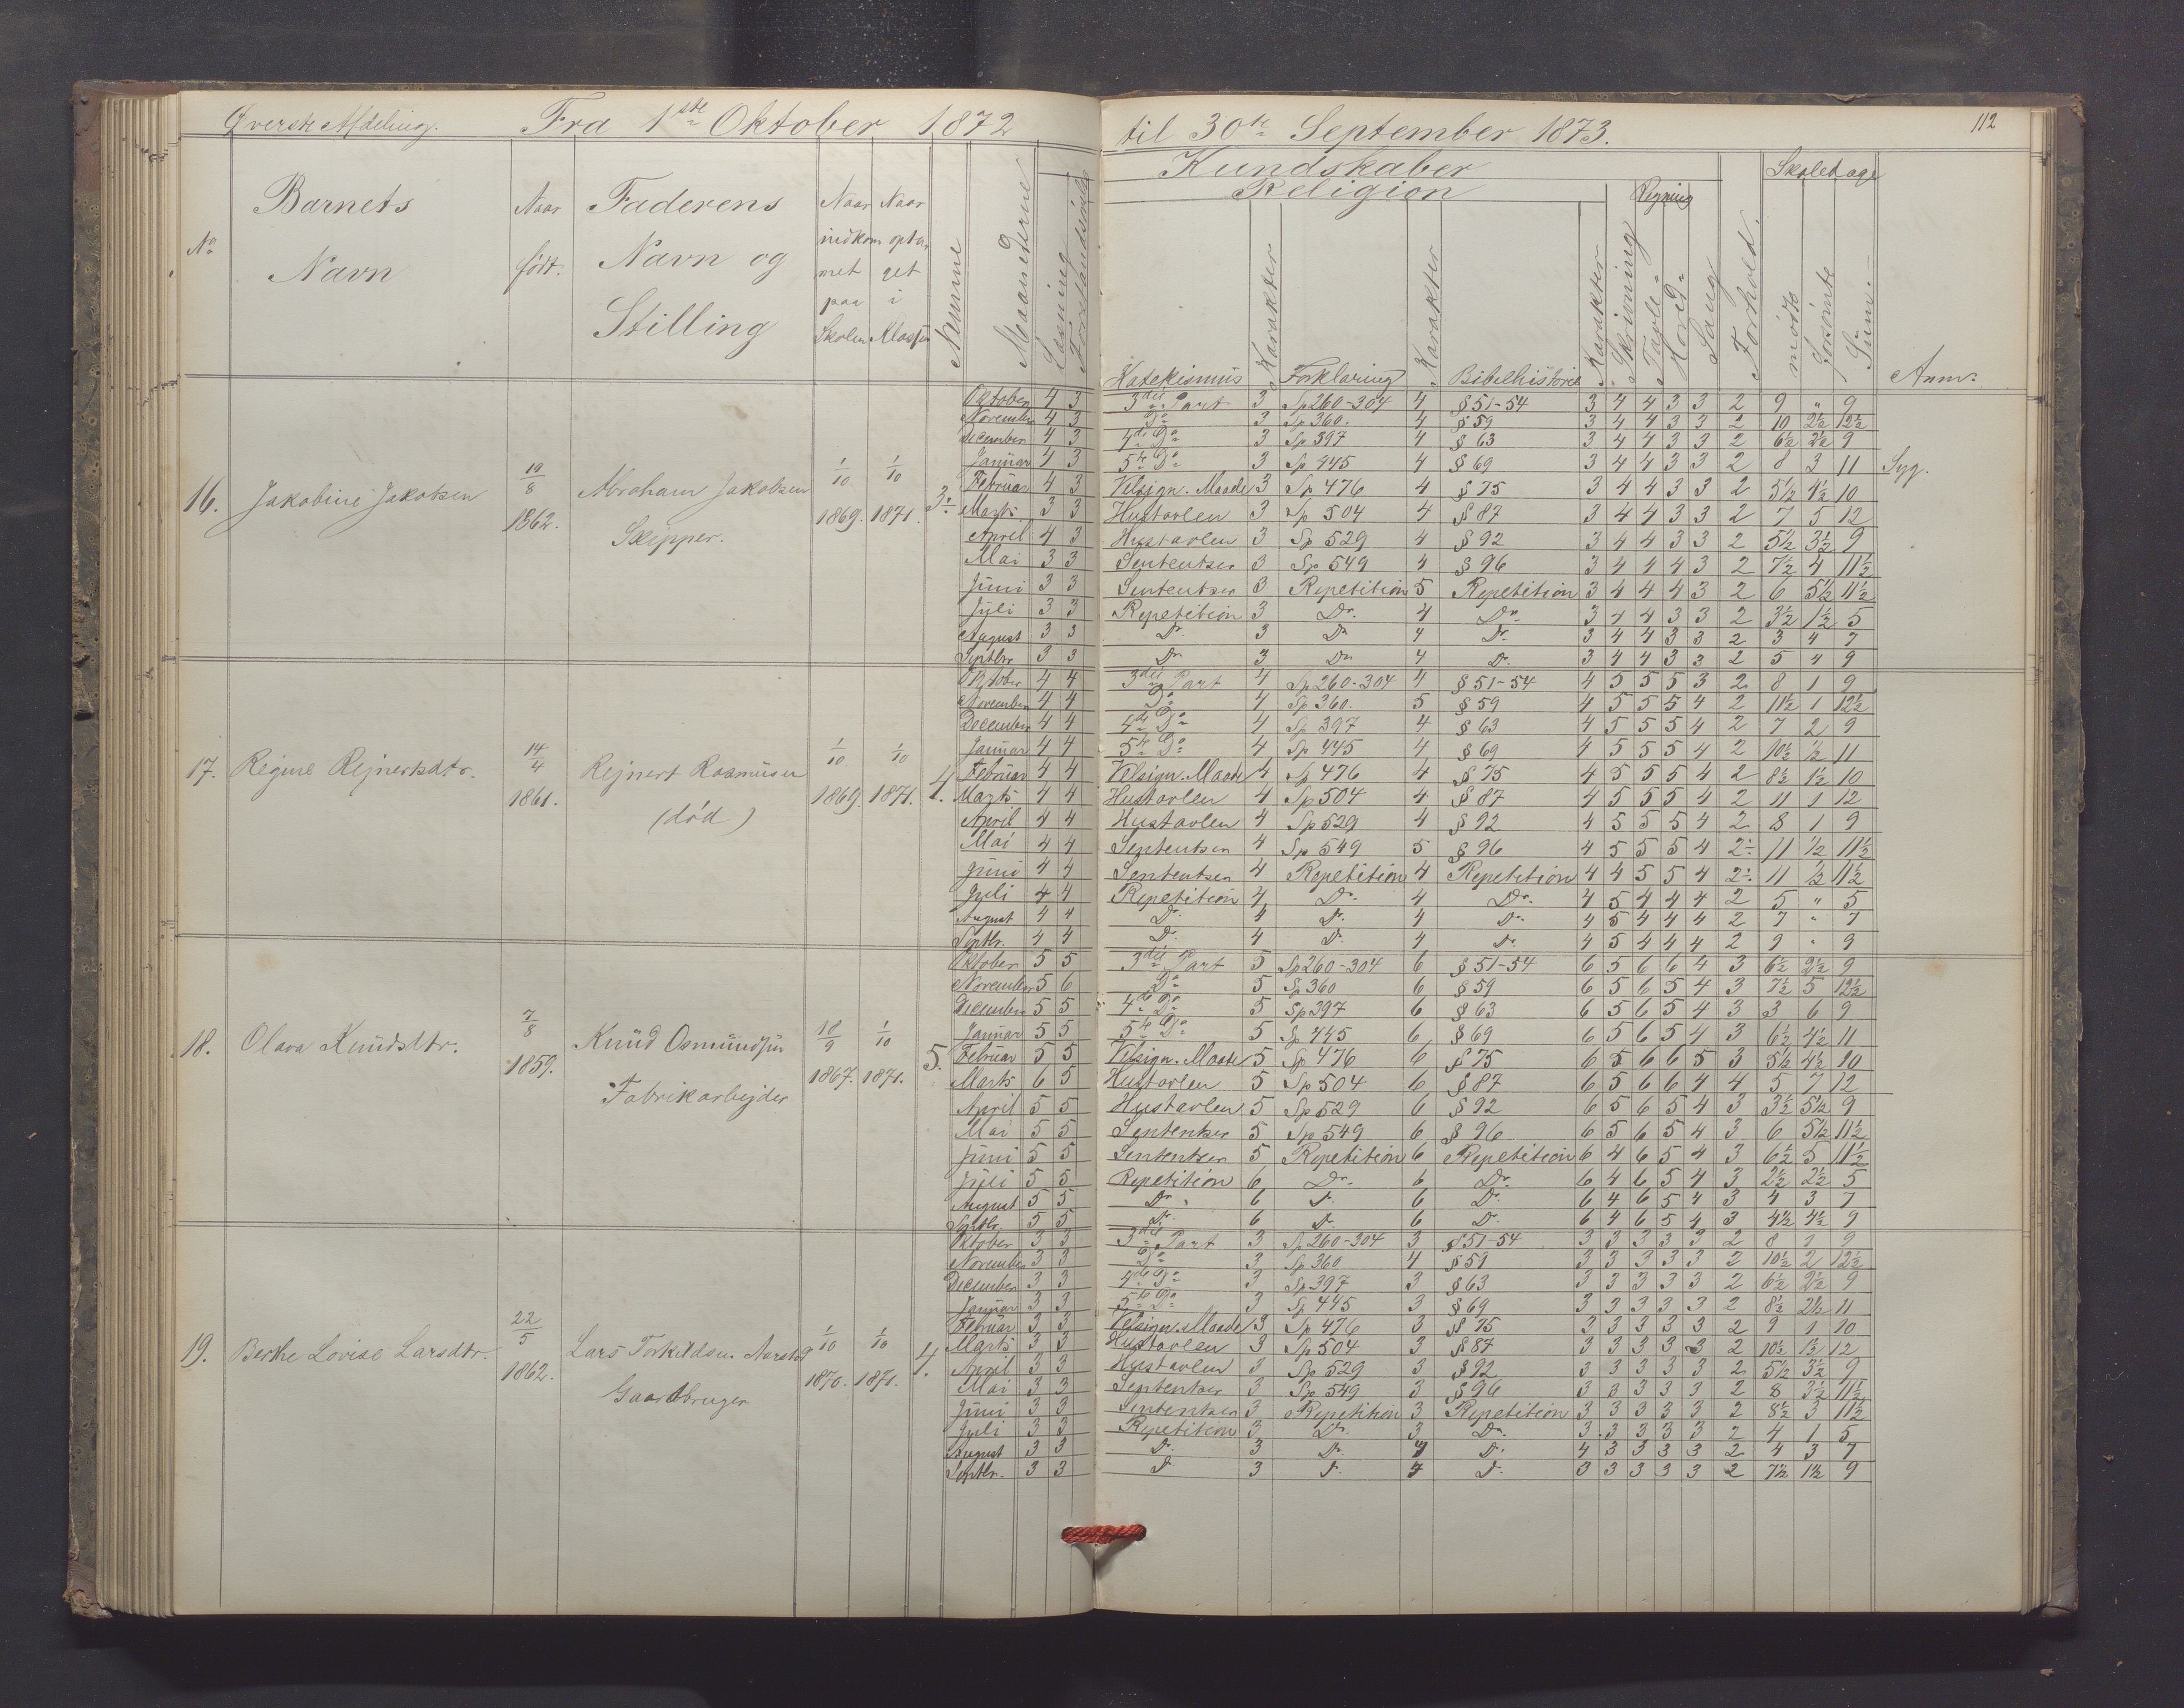 Øverste Afdeling. Fra 1ste Oktober 1872 til 30te September 1873. 112
Kundskaber Skoledage
Religion Regning
No Barnets Navn Naar født. Faderens Navn og Stilling Naar indkommet paa Skolen Naar optaget i Klassen Numne Maanederne Læsning Forstandsøvelse Katekismus Karakter Forklaring Karakter Bibelhistorie Karakter Skrivning Tavle- Hoved- Sang Forhold. mødte forsømte Sum. Anm.
16. Jakobine Jakobsen 19/8 1862. Abraham Jakobsen Skipper. 1/10 1869. 1/10 1871. 3.
Oktober 4 3 3die Part 3 Sp 260-304 4 § 51-54 3 4 4 3 3 2 9 " 9
November 4 3 Do 3 Sp 360. 4 § 59 3 4 4 3 3 2 10 2½ 12½
December 4 3 4de Do 3 Sp 397 4 § 63 3 4 4 3 3 2 6½ 2½ 9
Januar 4 3 5te Do 3 Sp 445 4 § 69 3 4 4 3 3 2 8 3 11 Syg.
Februar 4 3 Velsign. Maade 3 Sp 476 4 § 75 3 4 4 3 3 2 5½ 4½ 10
Marts 3 3 Hustavlen 3 Sp 504 4 § 87 3 4 4 3 3 2 7 5 12
April 4 3 Hustavlen 3 Sp 529 4 § 92 3 4 4 3 3 2 5½ 3½ 9
Mai 3 3 Sententser 3 Sp 549 4 § 96 3 4 4 4 3 2 7½ 4 11½
Juni 3 3 Sententser 3 Repetition 5 Repetition 3 4 4 4 3 2 6 5½ 11½
Juli 3 3 Repetition 3 Do. 4 Do. 3 4 4 3 3 2 3½ 1½ 5
August 3 3 Do 3 Do 4 Do. 3 4 4 3 3 2 3 4 7
Septbr 3 3 Do 3 Do 4 Do. 3 4 4 3 3 2 5 4 9
17. Regine Rejnertsdtr. 14/4 1861. Rejnert Rasmusen (död) 1/10 1869. 1/10 1871. 1.
Oktober 4 4 3die Part 4 Sp 260-304 4 § 51-54 4 5 5 5 3 2 8 1 9
November 4 4 Do 4 Sp 360. 5 § 59 4 5 5 5 4 2 11½ 1 12½
December 4 4 4de Do 4 Sp 397 4 § 63 4 5 5 5 4 2 7 2 9
Januar 4 4 5te Do 4 Sp 445 4 § 69 4 5 5 5 4 2 10½ ½ 11
Februar 4 4 Velsign. Maade 4 Sp 476 4 § 75 4 5 5 5 4 2 8½ 1½ 10
Marts 4 4 Hustavlen 4 Sp 504 4 § 87 4 5 5 5 4 2 11 1 12
April 4 4 Hustavlen 4 Sp 529 4 § 92 4 5 5 5 4 2 8 1 9
Mai 4 4 Sententser 4 Sp 549 5 § 96 4 5 5 5 4 2÷ 11 ½ 11½
Juni 4 4 Sententser 4 Repetition 4 Repetition 4 4 5 5 4 2÷ 11 ½ 11½
Juli 4 4 Repetition 4 Do. 4 Do. 4 5 4 4 4 2 5 " 5
August 4 4 Do. 4 Do. 4 Do. 4 5 4 4 4 2 7 " 7
Septbr. 4 4 Do. 4 Do. 4 Do. 4 5 4 4 4 2 9 " 9
18. Olava Knudsdtr. 7/8 1859. Knud Osmundsen Fabrikarbejder 18/9 1867. 1/10 1871. 5.
Oktober 5 5 3die Part 5 Sp 260-304 6 § 51-54 6 5 6 6 4 3 6½ 2½ 9
November 5 6 Do 5 Sp 360 6 § 59 6 5 6 5 4 3 7½ 5 12½
December 5 5 4de Do 5 Sp 397 6 § 63 6 5 6 5 4 3 3 6 9
Januar 5 5 5te Do 5 Sp 445 6 § 69 6 5 6 5 4 3 6½ 4½ 11
Februar 5 5 Velsign. Maade 5 Sp 476 6 § 75 6 5 6 6 5 3 5½ 4½ 10
Marts 6 5 Hustavlen 5 Sp 504 6 § 87 6 5 6 6 4 4 5 7 12
April 5 5 Hustavlen 5 Sp 529 6 § 92 6 5 6 5 4 3 3½ 5½ 9
Mai 5 5 Sententser 5 Sp 549 6 § 96 6 5 6 5 4 3 6 5½ 11½
Juni 5 5 Sententser 5 Repetition 6 Repetition 6 4 6 5 4 3 6½ 5 11½
Juli 5 5 Repetition 6 Do. 6 Do. 6 4 6 5 4 3 2½ 2½ 5
August 5 5 Do. 6 Do. 6 Do. 6 4 6 5 4 3 4 3 7
Septbr. 5 5 Do. 6 Do. 6 Do. 6 4 6 5 4 3 4½ 4½ 9
19. Berthe Lovise Larsdtr. 22/5 1862. Lars Torkildsen Gaardbruger 1/10 1870. 1/10 1871. 4.
Oktober 3 3 3die Part 3 Sp 260-304 3 § 51-54 3 3 3 3 3 2 8 1 9
November 3 3 Do 3 Sp 360 4 § 59 3 3 3 3 3 2 10½ 2 12½
December 3 3 4de Do 3 Sp 397 3 § 63 3 3 3 3 3 2 6½ 2½ 9
Januar 3 3 5te Do 3 Sp 445 3 § 69 3 3 3 3 3 2 8½ 2½ 11
Februar 3 3 Velsign. Maade 3 Sp 476 3 § 75 3 3 3 3 3 2 9 1 10
Marts 3 3 Hustavlen 3 Sp 504 3 § 87 3 3 3 3 3 2 10½ 1½ 12
April 3 3 Hustavlen 3 Sp 529 3 § 92 3 3 3 3 3 2 5½ 3½ 9
Mai 3 3 Sententser 3 Sp 549 3 § 96 3 3 3 3 3 2 8 3½ 11½
Juni 3 3 Sententser 3 Repetition 3 Repetition 3 3 3 3 3 2 8½ 3 11½
Juli 3 3 Repetition 3 Do. 3 Do. 3 3 3 3 3 2 4 1 5
August 3 3 Do. 3 Do. 4 Do. 4 3 3 3 3 2 4 3 7
Septbr. 3 3 Do 3 Do. 4 Do. 3 3 3 3 3 2 7½ 1½ 9